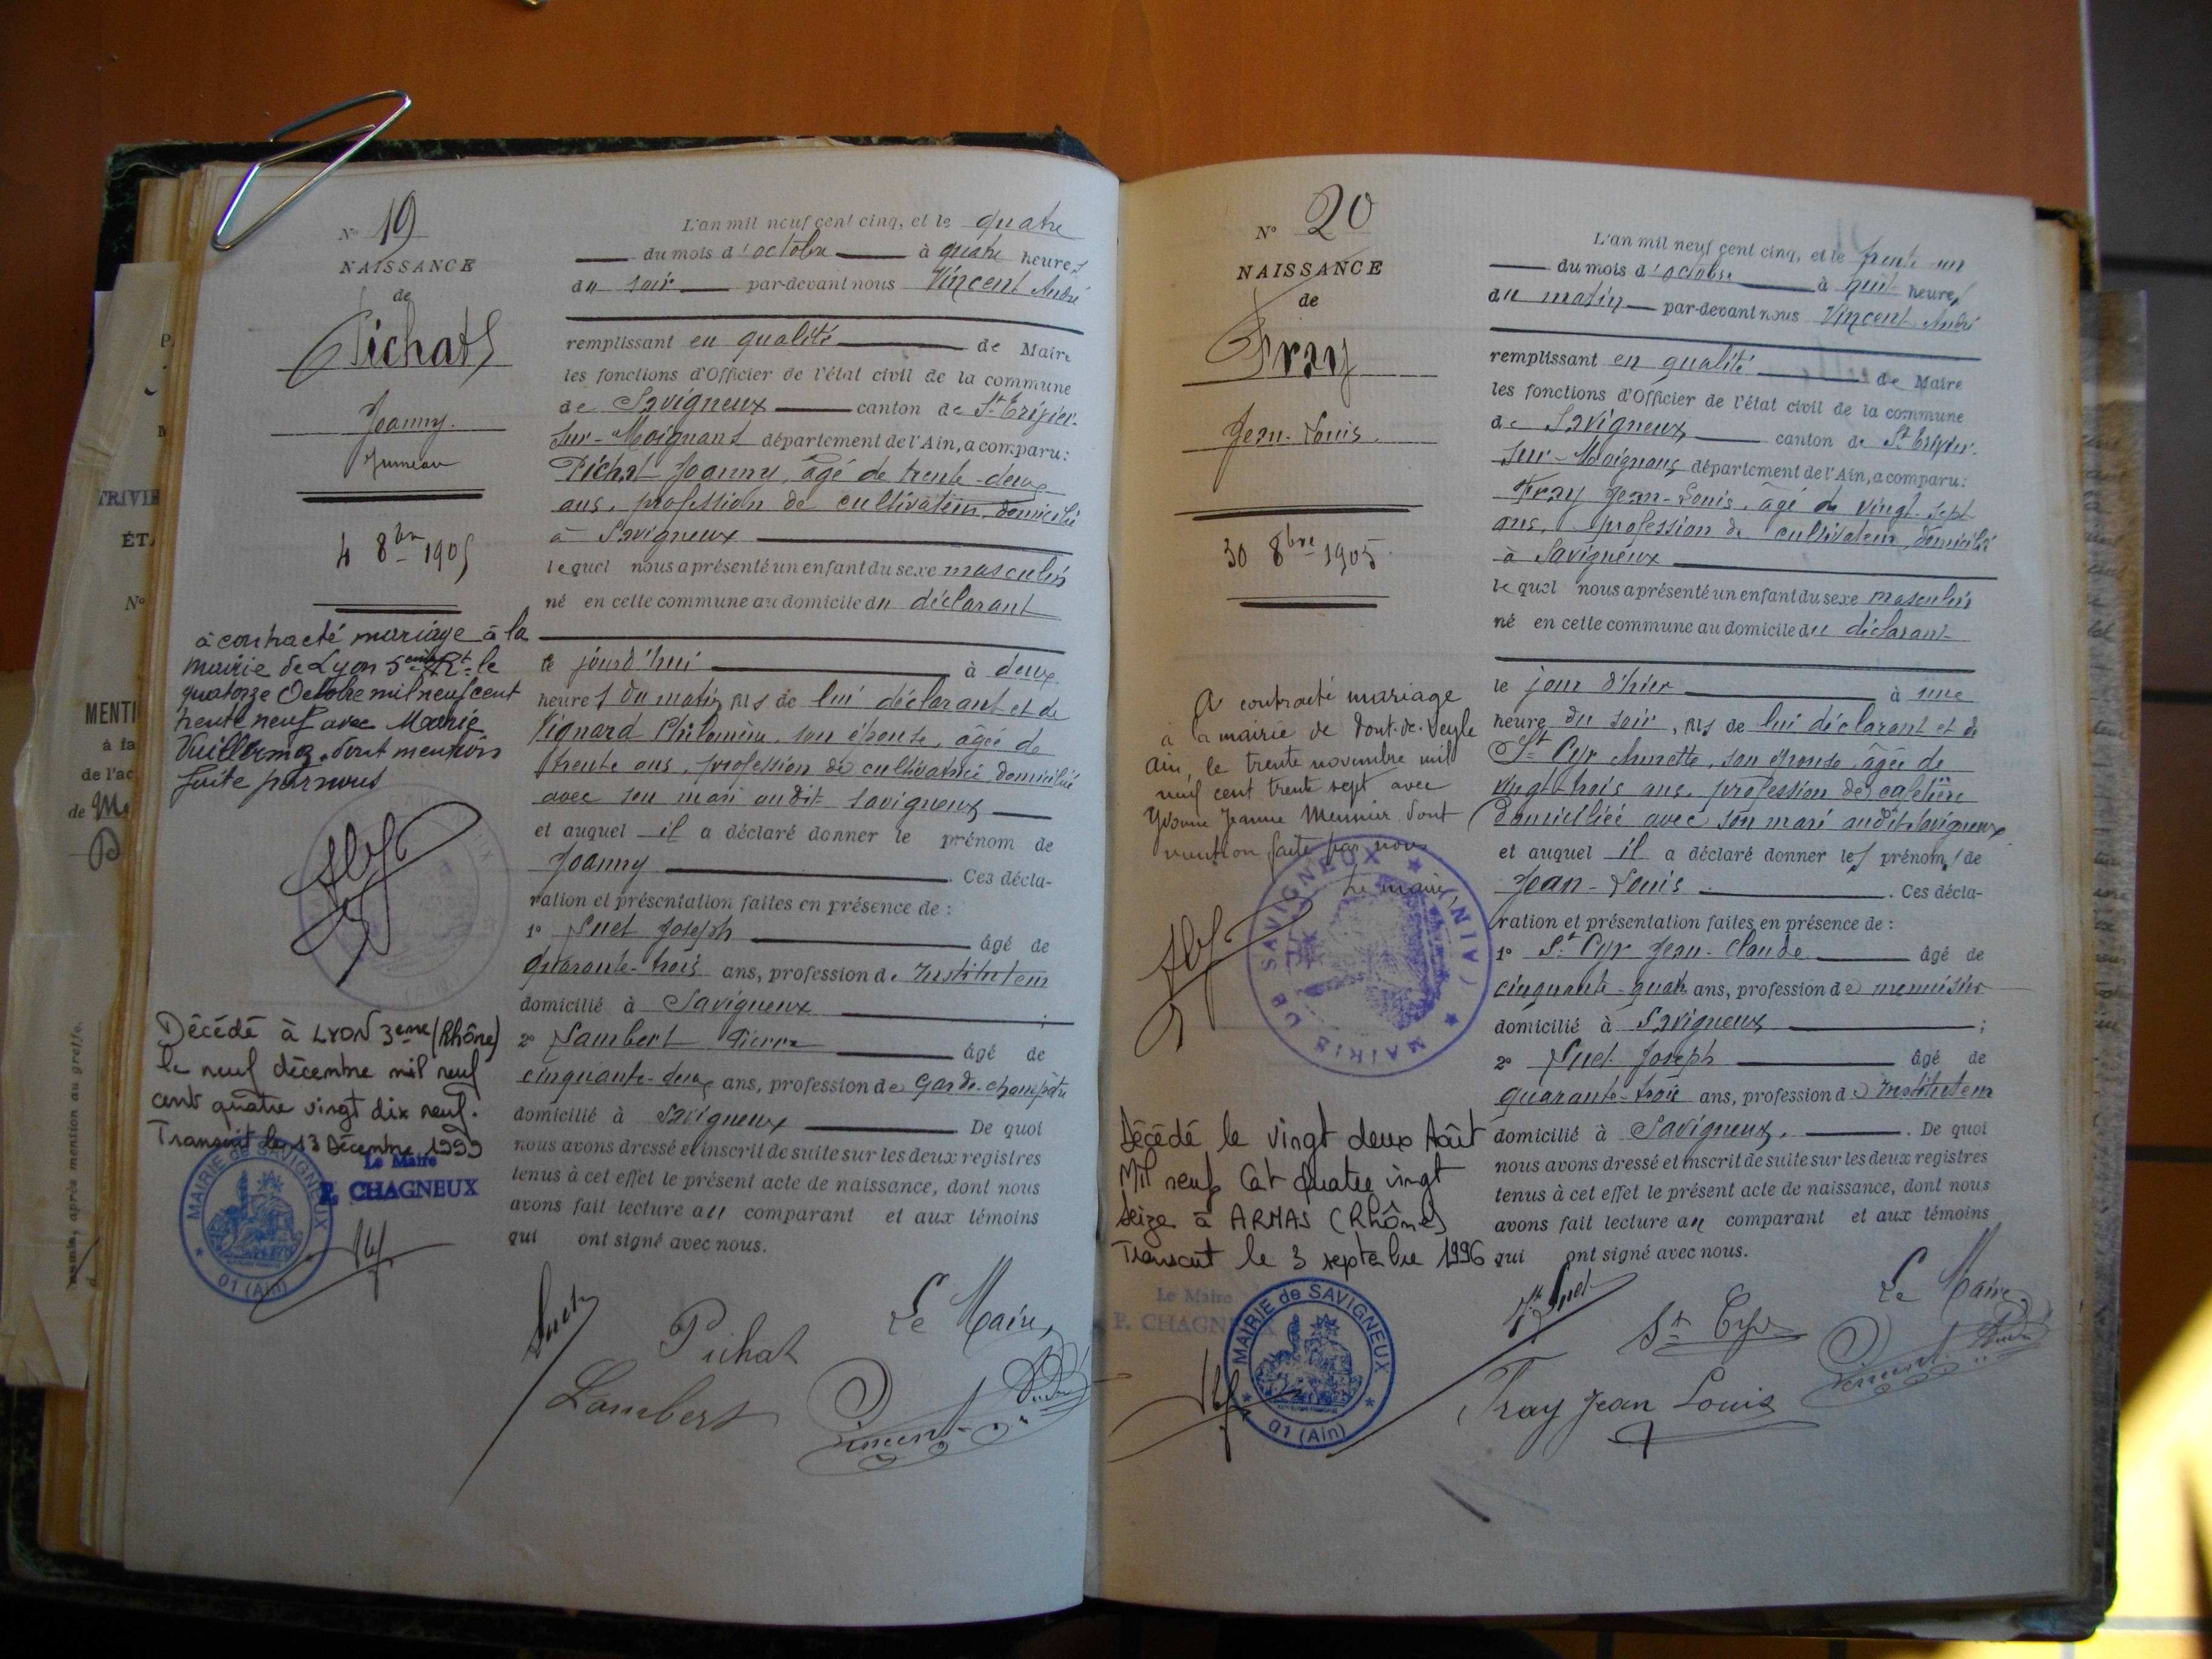 N° 19
NAISSANCE
de
Pichat
Joanny
Jumeau
4 8bre 1905
à contracté mariage à la
mairie de Lyon 5ème Rt. le
quatorze Octobre mil neuf cent
trente neuf avec Marie
dont mention
faite par nous
Décédé à LYON 3eme (Rhône)
le neuf décembre mil neuf
cent quatre vingt dix neuf.
Transcrit le 13 Décembre 1999
Le Maire
P. CHAGNEUX
MAIRIE de SAVIGNEUX
01 (Ain)
L'an mil neuf cent cinq, et le quatre
du mois d'octobre à quatre heures
du soir par-devant nous Vincent André
remplissant en qualité de Maire
les fonctions d'Officier de l'état civil de la commune
de Savigneux canton de St Trivier-
sur-Moignans département de l'Ain, a comparu:
Pichat Joanny, âgé de trente-deux
ans, profession de cultivateur, domicilié
à Savigneux
lequel nous a présenté un enfant du sexe masculin
né en cette commune au domicile du déclarant
le jourd'hui à deux
heures du matin, fils de lui déclarant et de
Vignard Philomène, son épouse, âgée de
trente ans, profession de cultivatrice domiciliée
avec son mari audit Savigneux
et auquel il a déclaré donner le prénom de
Joanny. Ces décla-
ration et présentation faites en présence de :
1° Suet Joseph âgé de
quarante-trois ans, profession de Instituteur
domicilié à Savigneux ;
2° Lambert Pierre âgé de
cinquante-deux ans, profession de Garde-champêtre
domicilié à Savigneux De quoi
nous avons dressé et inscrit de suite sur les deux registres
tenus à cet effet le présent acte de naissance, dont nous
avons fait lecture au comparant et aux témoins
qui ont signé avec nous.
Suet Pichat Le Maire,
Lambert Vincent André
N° 20
NAISSANCE
de
Fray
Jean-Louis
30 8bre 1905
A contracté mariage
à la mairie de Pont-de-Veyle
Ain, le trente novembre mil
neuf cent trente sept avec
Yvonne Jeanne Meunier dont
mention faite par nous
Le maire,
MAIRIE DE SAVIGNEUX (AIN)
Décédé le vingt deux Août
Mil neuf Cent quatre vingt
seize à ARNAS (Rhône)
Transcrit le 3 septembre 1996
Le Maire
P. CHAGNEUX
MAIRIE de SAVIGNEUX
01 (Ain)
L'an mil neuf cent cinq, et le trente un
du mois d'octobre à huit heures
du matin par-devant nous Vincent André
remplissant en qualité de Maire
les fonctions d'Officier de l'état civil de la commune
de Savigneux canton de St Trivier-
sur-Moignans département de l'Ain, a comparu:
Fray Jean-Louis, âgé de vingt-sept
ans, profession de cultivateur domicilié
à Savigneux
lequel nous a présenté un enfant du sexe masculin
né en cette commune au domicile du déclarant
le jour d'hier à une
heure du soir, fils de lui déclarant et de
St Cyr son épouse, âgée de
vingt-trois ans, profession de cafetière
domiciliée avec son mari audit Savigneux
et auquel il a déclaré donner les prénoms de
Jean-Louis. Ces décla-
ration et présentation faites en présence de :
1° St Cyr Jean-Claude âgé de
cinquante-quatre ans, profession de menuisier
domicilié à Savigneux ;
2° Suet Joseph âgé de
quarante-trois ans, profession de Instituteur
domicilié à Savigneux. De quoi
nous avons dressé et inscrit de suite sur les deux registres
tenus à cet effet le présent acte de naissance, dont nous
avons fait lecture au comparant et aux témoins
qui ont signé avec nous.
Suet St Cyr Le Maire,
Fray Jean Louis Vincent André